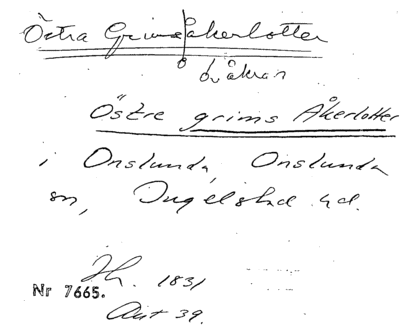 Östra Grimsåkerlotter
åkran
Östre grims Åkerlotter
i Onslunda, Onslunda
sn, Ingelstad hd.
1831
Nr 7665.
Akt 39.